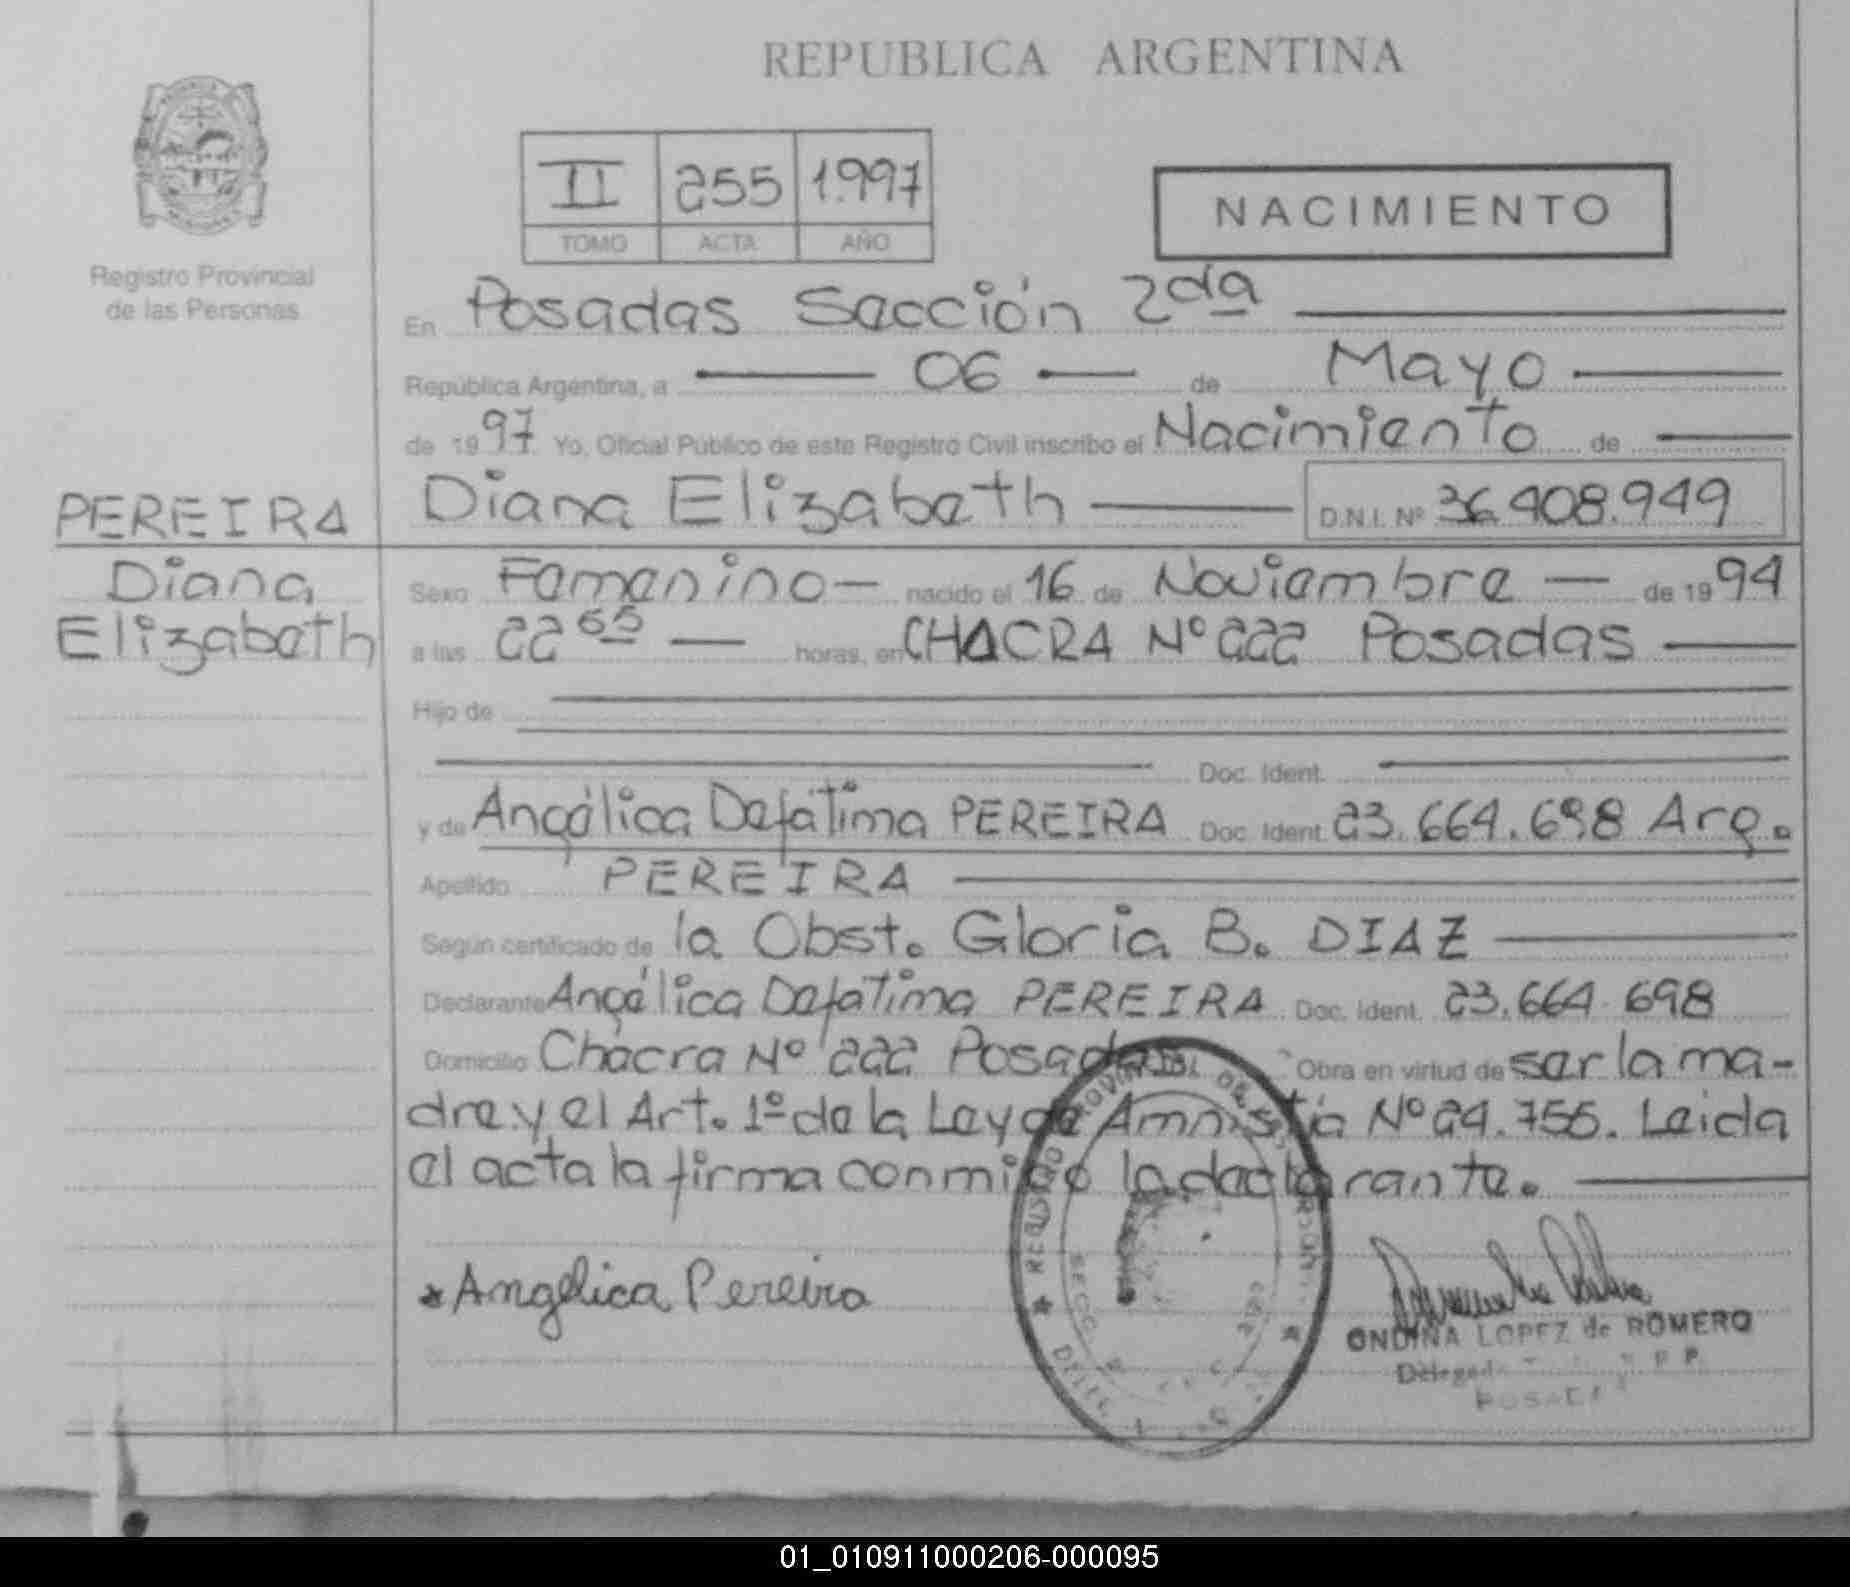 REPUBLICA ARGENTINA
II 255 1.997
TOMO ACTA AÑO
NACIMIENTO
Registro Provincial
de las Personas
En Posadas Sección 2da
República Argentina, a 06 de Mayo
de 1997 Yo, Oficial Público de este Registro Civil inscribo el Nacimiento de
PEREIRA
Diana
Elizabeth
Diana Elizabeth D.N.I. Nº 36.408.949
Sexo Femenino nacido el 16 de Noviembre de 1994
a las 22 horas, en CHACRA Nº 222 Posadas
Hijo de
Doc. Ident.
y de Angélica Defátima PEREIRA Doc. Ident. 23.664.698 Arg.
Apellido PEREIRA
Según certificado de la Obst. Gloria B. DIAZ
Declarante Angélica Defatima PEREIRA Doc. Ident. 23.664.698
Domicilio Chacra Nº 222 Posadas Obra en virtud de ser la ma-
dre y el Art. 1º de la Ley de Amnistía Nº 24.755. Leida
el acta la firma conmigo la declarante.
Angélica Pereira
REGISTRO PROVINCIAL DE LAS PERSONAS
ONDINA LOPEZ de ROMERO
POSADAS
01_010911000206-000095